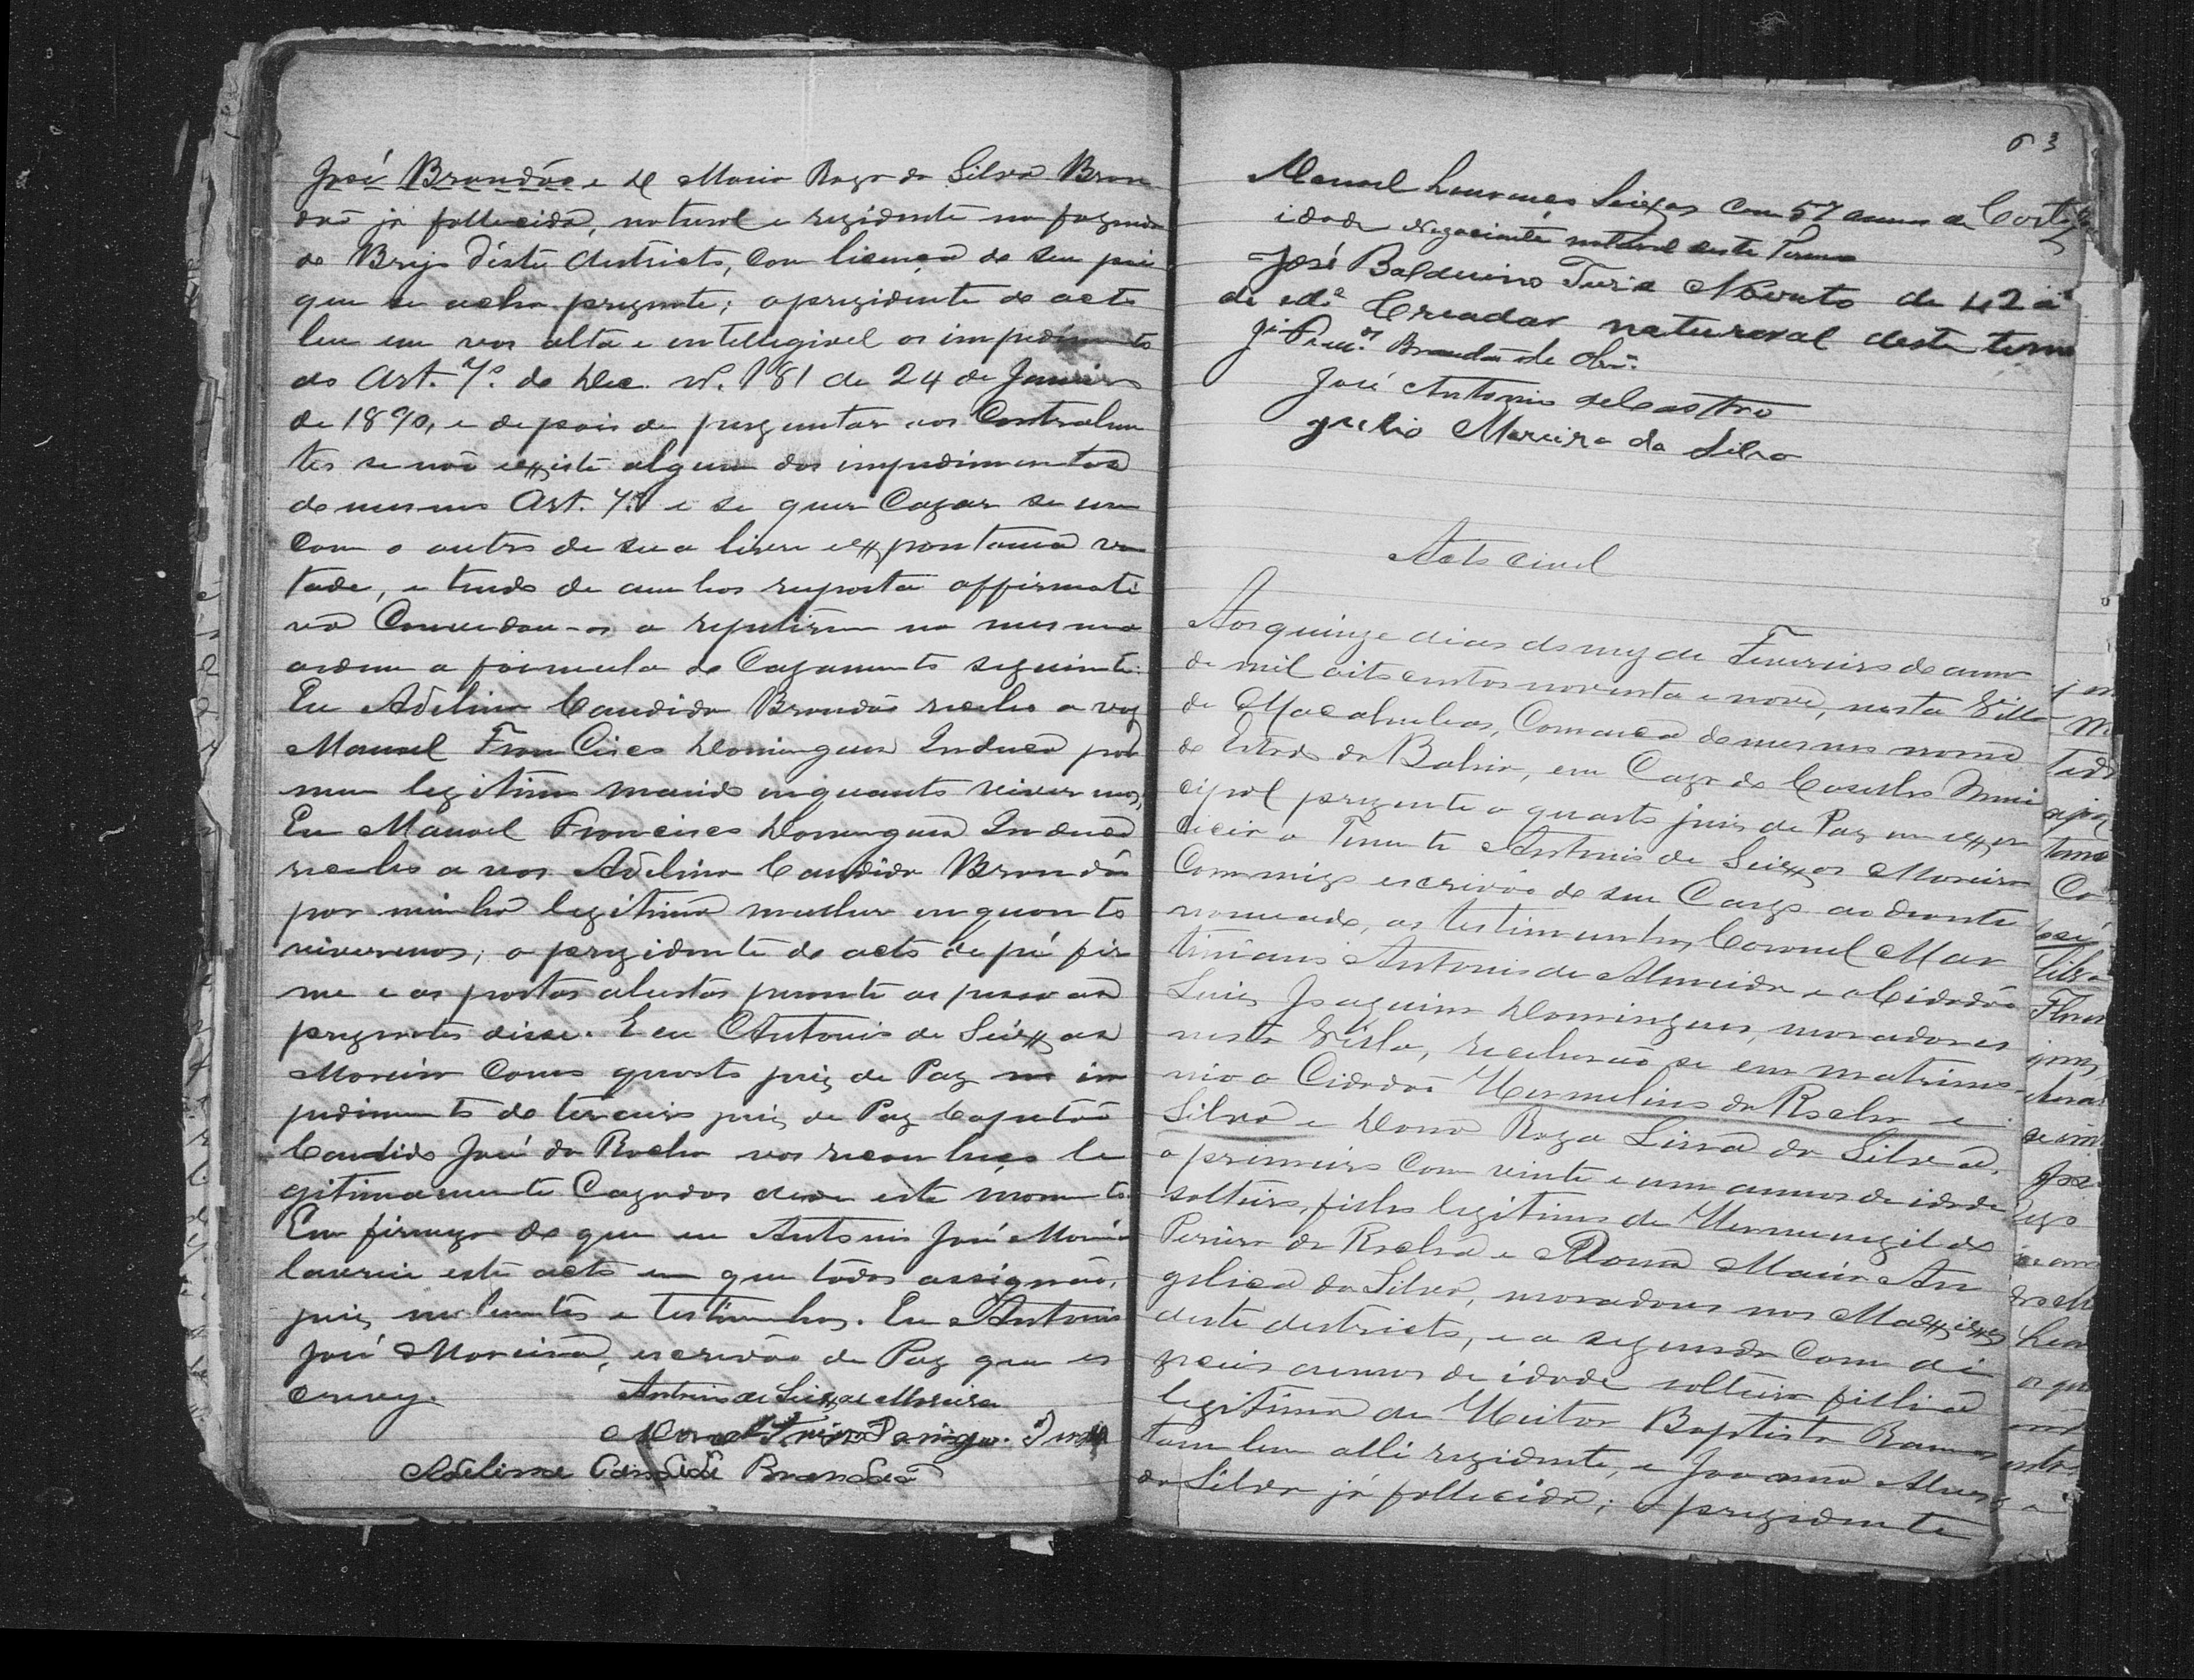 José Brandão e D Maria Roza da Silva Bran
dão já fallecida, natural e rezidente na fazenda
do Brejo d'éste destricto, com licença de seu pai
que se acha prezente; o prezidente do acto
leu em vos alta e entellegivel os impedimento
do Art. 7º. do Dec. Nº. 181 de 24 de Janeiro
de 1890, e depois de perguntar aos Contrahen
tes se não existe algum dos impedimentos
do mesmo Art. 7º e se quer Cazar se um
com o outro de sua livre expontanea vo
tade, e tendo de ambos resposta affirmati
va Convidou-os a repetirem na mesma
ordem a formula do Cazamento seguinte:
Eu Adelina Candida Brandão recebo a voz
Manoel Francisco Domingues Induca por
meu legitimo marido enquanto vivermos;
Eu Manoel Francisco Domingues Induca
recebo a vos Adelina Candida Brandão
por minha legitima mulher enquanto
vivermos; o prezidente do acto de pé fir
me e as portas abertas perante as pessoas
prezentes disse. E eu Antonio de Seixas
Moreira Como quarto juiz de Paz no im
pedimento do terceiro juiz de Paz Capitão
Candido José da Rocha vos reconheço le
gitimamente Cazados desde este momento.
Em firmeza do que eu Antonio José Morei
lavrei este acto em que todos assignão,
juiz, nubentes e testimunhas. Eu Antonio
José Moreira, escrivão de Paz que es
crevy.
Antonio de Seixas Moreira
Adelina Candida Brandão
63
Manoel Lourenço Seixas com 57 annos de
idade Negociante natural deste Termo
José Balduino Novato de 42 a
de ede Creador natureral deste termo
Brandão de
José Antonio de Castro
Julio Moreira da Silva
Acto civil
Aos quinze dias do mez de Fevereiro do anno
de mil oito centos noventa e nove, nesta Villa
de Macahubas, Comarca do mesmo nome
do Estado da Bahia, em Caza do Conselho Muni
cipal prezente o quarto juiz de Paz em exer
cicio o Tenente Antonio de Seixas Moreira
Commigo escrivão de seu Cargo ao diante
nomeado, as testimunhas Coronel Mar
Antonio de Almeida e o Cidadão
Luis Joaquim Domingues, moradores
nesta Villa, receberão se em matrimo
nio o Cidadão Hermelino da Rocha e
Silva e Dona Roza Lina da Silva,
o primeiro com vinte e um annos de idade
solteiro, filho legitimo de Hermenegildo
Pereira da Rocha e Dona Maria An
gelica da Silva, moradores nos Maxixes
deste destricto, e a segunda com de
zeis annos de idade solteira filha
legitima de Heitor Baptista Ramos
tambem alli rezidente, e Joanna Alves
da Silva já fallecida; o prezidente